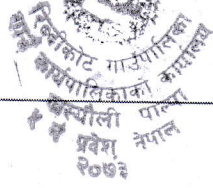 रिब्दीकोट गाउँपालिका
गाउँ कार्यपालिकाको कार्यालय
पाल्पा
प्रदेश, नेपाल
२०७३